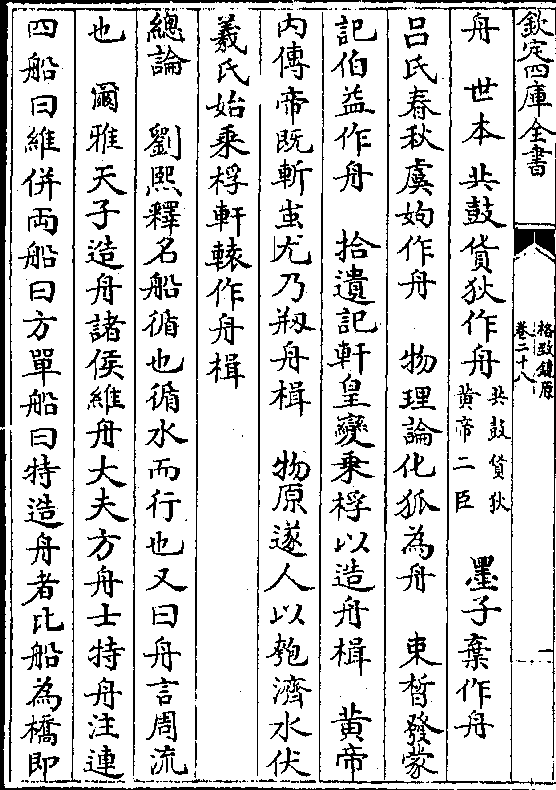 欽定四庫全書
格致鏡原
卷二十八
一
舟　世本共鼓貨狄作舟共鼓貨狄黃帝二臣　墨子棄作舟
呂氏春秋虞姁作舟　物理論化狐為舟　束晳發蒙
記伯益作舟　拾遺記軒皇變乘桴以造舟楫　黃帝
內傳帝既斬蚩尤乃刱舟楫　物原遂人以匏濟水伏
羲氏始乘桴軒轅作舟楫
總論　劉熙釋名船循也循水而行也又曰舟言周流
也　爾雅天子造舟諸侯維舟大夫方舟士特舟注連
四船曰維併兩船曰方單船曰特造舟者比船為橋即